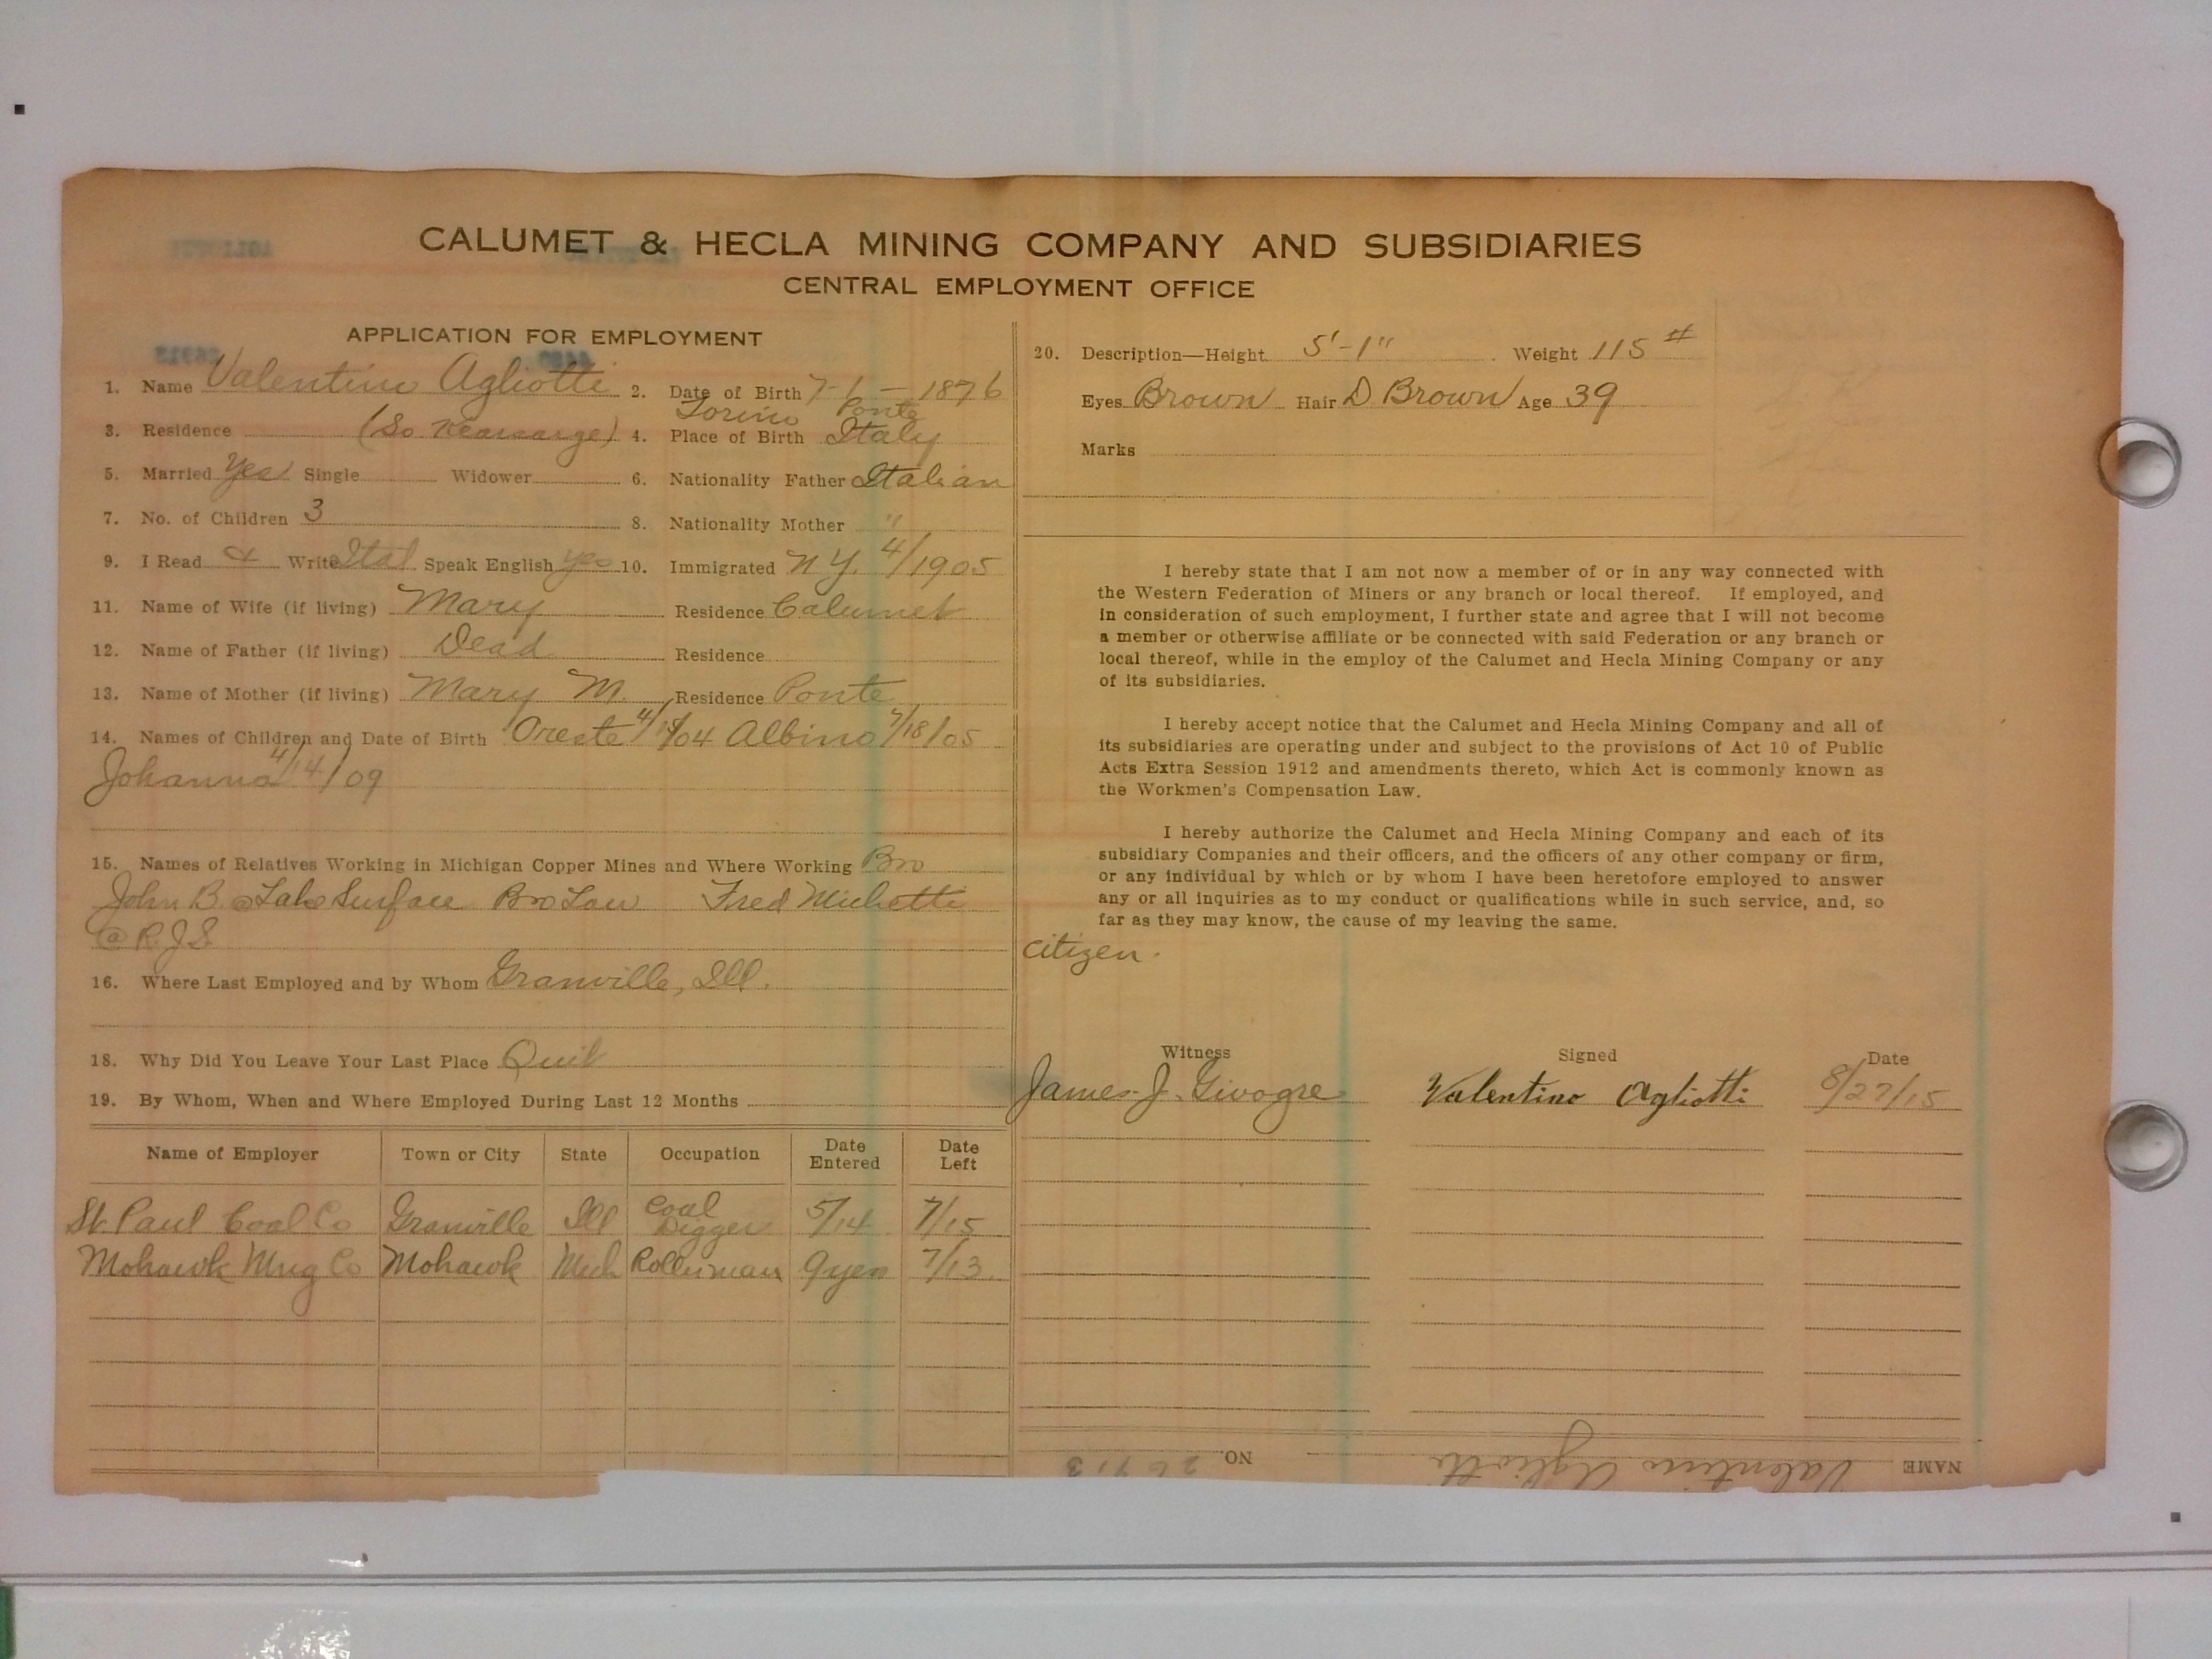 CALUMET & HECLA MINING COMPANY AND SUBSIDIARIES
CENTRAL EMPLOYMENT OFFICE
APPLICATION FOR EMPLOYMENT
1. Name Valentino Agliotti 2. Date of Birth 7-1-1876
Torino Ponte
3. Residence (So. Kearsarge) 4. Place of Birth Italy
5. Married Yes Single Widower 6. Nationality Father Italian
7. No. of Children 3 8. Nationality Mother "
9. I Read & Write Ital Speak English yes 10. Immigrated N.Y. 4/1905
11. Name of Wife (if living) Mary Residence Calumet
12. Name of Father (if living) Dead Residence
13. Name of Mother (if living) Mary M. Residence Ponte
14. Names of Children and Date of Birth Oreste /04 Albino 7/18/05
Johanna 4/14/09
15. Names of Relatives Working in Michigan Copper Mines and Where Working Bro
John B. @ Lake Surface Bro Law Fred Michetti
@ R.J.S.
16. Where Last Employed and by Whom Granville, Ill.
18. Why Did You Leave Your Last Place Quit
19. By Whom, When and Where Employed During Last 12 Months
Name of Employer Town or City State Occupation Date Entered Date Left
St. Paul Coal Co Granville Ill Coal Digger 5/14 7/15
Mohawk Mng Co Mohawk Mich Rollerman 9 yrs 7/13
20. Description—Height 5'-1" Weight 115 #
Eyes Brown Hair D. Brown Age 39
Marks
I hereby state that I am not now a member of or in any way connected with
the Western Federation of Miners or any branch or local thereof. If employed, and
in consideration of such employment, I further state and agree that I will not become
a member or otherwise affiliate or be connected with said Federation or any branch or
local thereof, while in the employ of the Calumet and Hecla Mining Company or any
of its subsidiaries.
I hereby accept notice that the Calumet and Hecla Mining Company and all of
its subsidiaries are operating under and subject to the provisions of Act 10 of Public
Acts Extra Session 1912 and amendments thereto, which Act is commonly known as
the Workmen's Compensation Law.
I hereby authorize the Calumet and Hecla Mining Company and each of its
subsidiary Companies and their officers, and the officers of any other company or firm,
or any individual by which or by whom I have been heretofore employed to answer
any or all inquiries as to my conduct or qualifications while in such service, and, so
far as they may know, the cause of my leaving the same.
citizen.
Witness Signed Date
James J. Givogre Valentino Agliotti 8/27/15
NAME Valentino Agliotti NO.